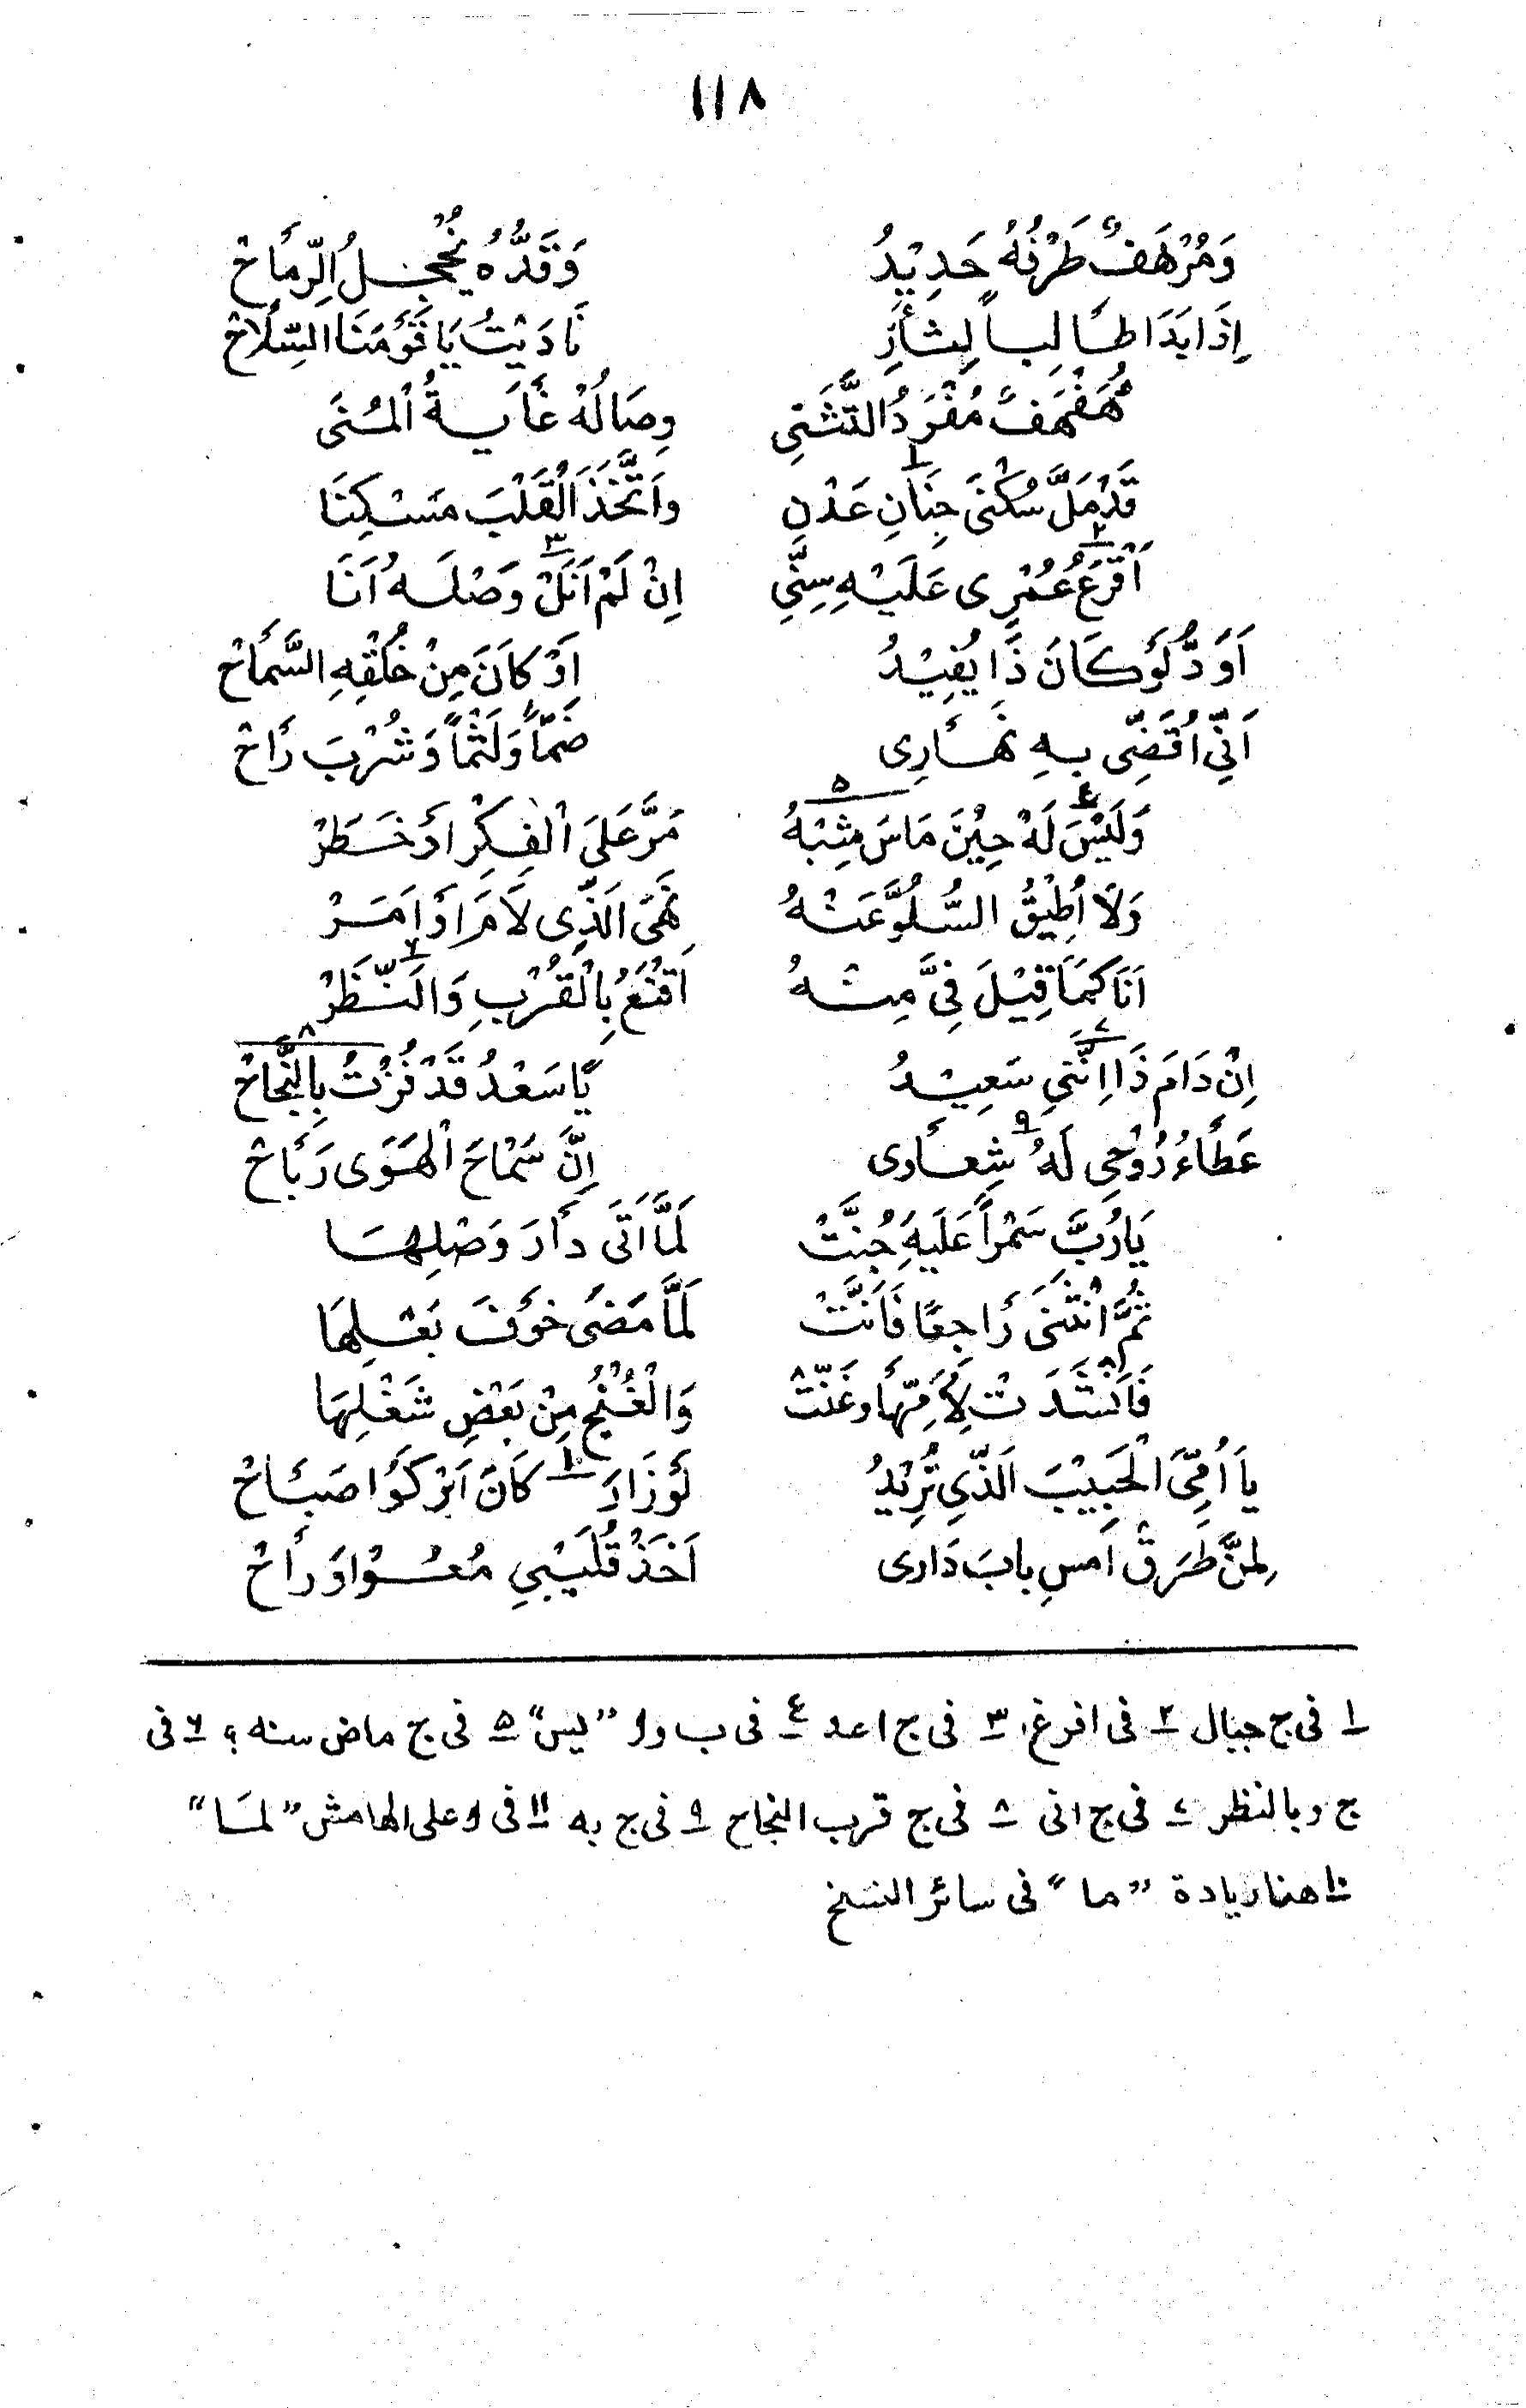 ١١٨
وَمُرْهَفٌ طَرْفُهُ حَدِيْدُ وَقَدُّهُ يُخْجِلُ الرِّمَاحْ
إِذَا بَدَا طَالِباً لِثَأْرٍ نَادَيْتُ يَا قَوْمَنَا السِّلَاحْ
مُهَفْهَفٌ مُفْرَدُ التَّثَنِّي وِصَالُهْ غَايَةُ الْمُنَى
قَدْ مَلَّ سُكْنَى جِنَانِ ١ عَدْنٍ وَاتَّخَذَ الْقَلْبَ مَسْكِنَا
اَقْرَعُ ٢ عُمْرِى عَلَيْهِ سِنِّي اِنْ لَمْ اَنَلْ ٣ وَصْلَهُ اَنَا
اَوَدُّ لَوْ كَانَ ذَا يُفِيْدُ اَوْ كَانَ مِنْ خُلْقِهِ السَّمَاحْ
اَنِّي اُقَضِّى بِهِ نَهَارِى ضَمّاً وَلَثْماً وَشُرْبَ رَاحْ
وَلَيْسَ ٤ لَهْ حِيْنَ مَاسَ مِثِبْهُ ٥ مَرَّ عَلَى الْفِكْرِ اَوْ خَطَرْ
وَلَا اُطِيْقُ السُّلُوَّ عَنْهُ نَهَى الَذِّى لَامَ اَوْ اَمَرْ
اَنَا كَمَا قِيْلَ فِيَّ مِنْهُ اَقْنَعُ بِالْقُرْبِ وَالنَّظَرْ ٦
اِنْ دَامَ ذَا اِنَّنِي ٧ سَعِيْدُ يَا سَعْدُ قَدْ فُزْتُ بِالنَّجَاحْ ٨
عَطَاءُ رُوْحِي لَهُ ٩ شِعَارى اِنَّ سَمَاحَ الْهَوَى رَبَاحْ
يَا رُبَّ سَمْرَاً عَلَيهِ جُنَّتْ لَمَّا اَتَى دَارَ وَصْلِهَا
ثُمَّ انْثَنَى رَاجِعًا فَاَنَّتْ لَمَّا مَضَى خَوْفَ بَعْلِهَا
فَاَنْشَدَتْ لِأُمِّهَا وغَنَّتْ وَالْغُنْجُ مِنْ بَعْضِ شَغْلِهَا
يَا اُمِّىَ الْحَبِيْبَ الَذِّي تُرِيْدُ لَوْ زَارَ ١٠ كَانَ اَبْرَكَوْا صَبَاحْ
لِمنَّ طَرَقْ اَمسِ بابَ دَارى اَخَذْ قُلَيْبِي مُعُوْا وَرَاحْ
١ فى ج جبال ٢ فى ا فرغ ٣ فى ج اعد ٤ فى ب و ا "ليس" ٥ فى ج ماض سنه ؟ ٦ فى
ج وبالنظر ٧ فى ج انى ٨ فى ج قرب النجاح ٩ فى ج به ١١ فى ا وعلى الهامش "لمَا"
١٠ هنا زيادة "ما" فى سائر النسخ